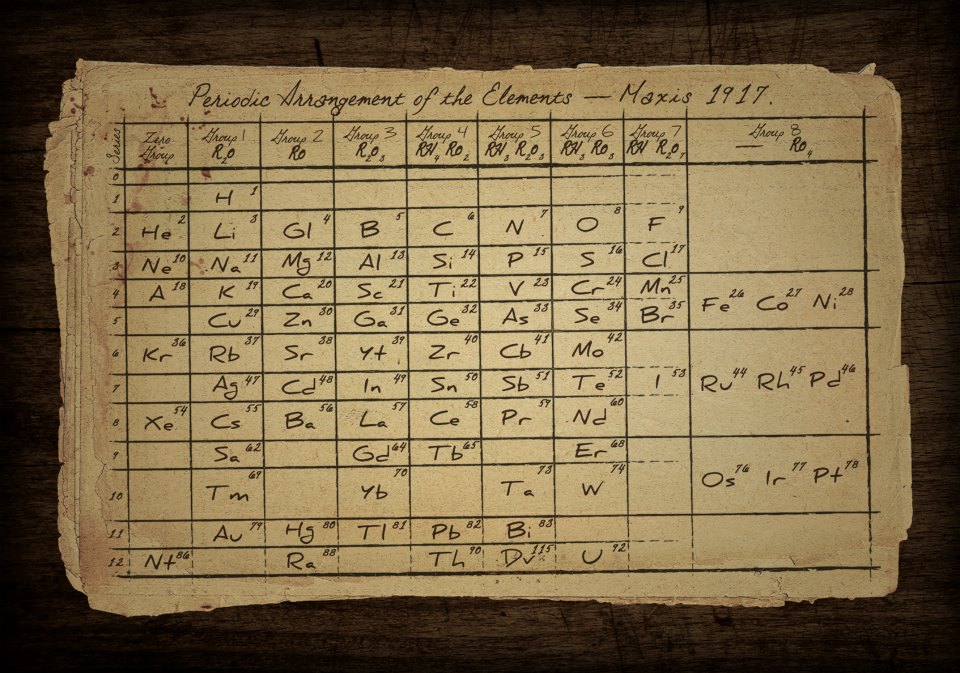 Periodic Arrangement of the Elements — Maxis 1917.
Series Zero Group Group 1 R₂O Group 2 RO Group 3 R₂O₃ Group 4 RH₄ RO₂ Group 5 RH₃ R₂O₃ Group 6 RH₃ RO₃ Group 7 RH R₂O₇ Group 8 RO₄
0
1 H 1
2 He 2 Li 3 Gl 4 B 5 C 6 N 7 O 8 F 9
3 Ne 10 Na 11 Mg 12 Al 13 Si 14 P 15 S 16 Cl 17
4 A 18 K 19 Ca 20 Sc 21 Ti 22 V 23 Cr 24 Mn 25 Fe 26 Co 27 Ni 28
5 Cu 29 Zn 30 Ga 31 Ge 32 As 33 Se 34 Br 35
6 Kr 36 Rb 37 Sr 38 Yt 39 Zr 40 Cb 41 Mo 42
7 Ag 47 Cd 48 In 49 Sn 50 Sb 51 Te 52 I 53 Ru 44 Rh 45 Pd 46
8 Xe 54 Cs 55 Ba 56 La 57 Ce 58 Pr 59 Nd 60
9 Sa 62 Gd 64 Tb 65 Er 68
10 Tm 69 Yb 70 Ta 73 W 74 Os 76 Ir 77 Pt 78
11 Au 79 Hg 80 Tl 81 Pb 82 Bi 83
12 Nt 86 Ra 88 Th 90 Dv 115 U 92